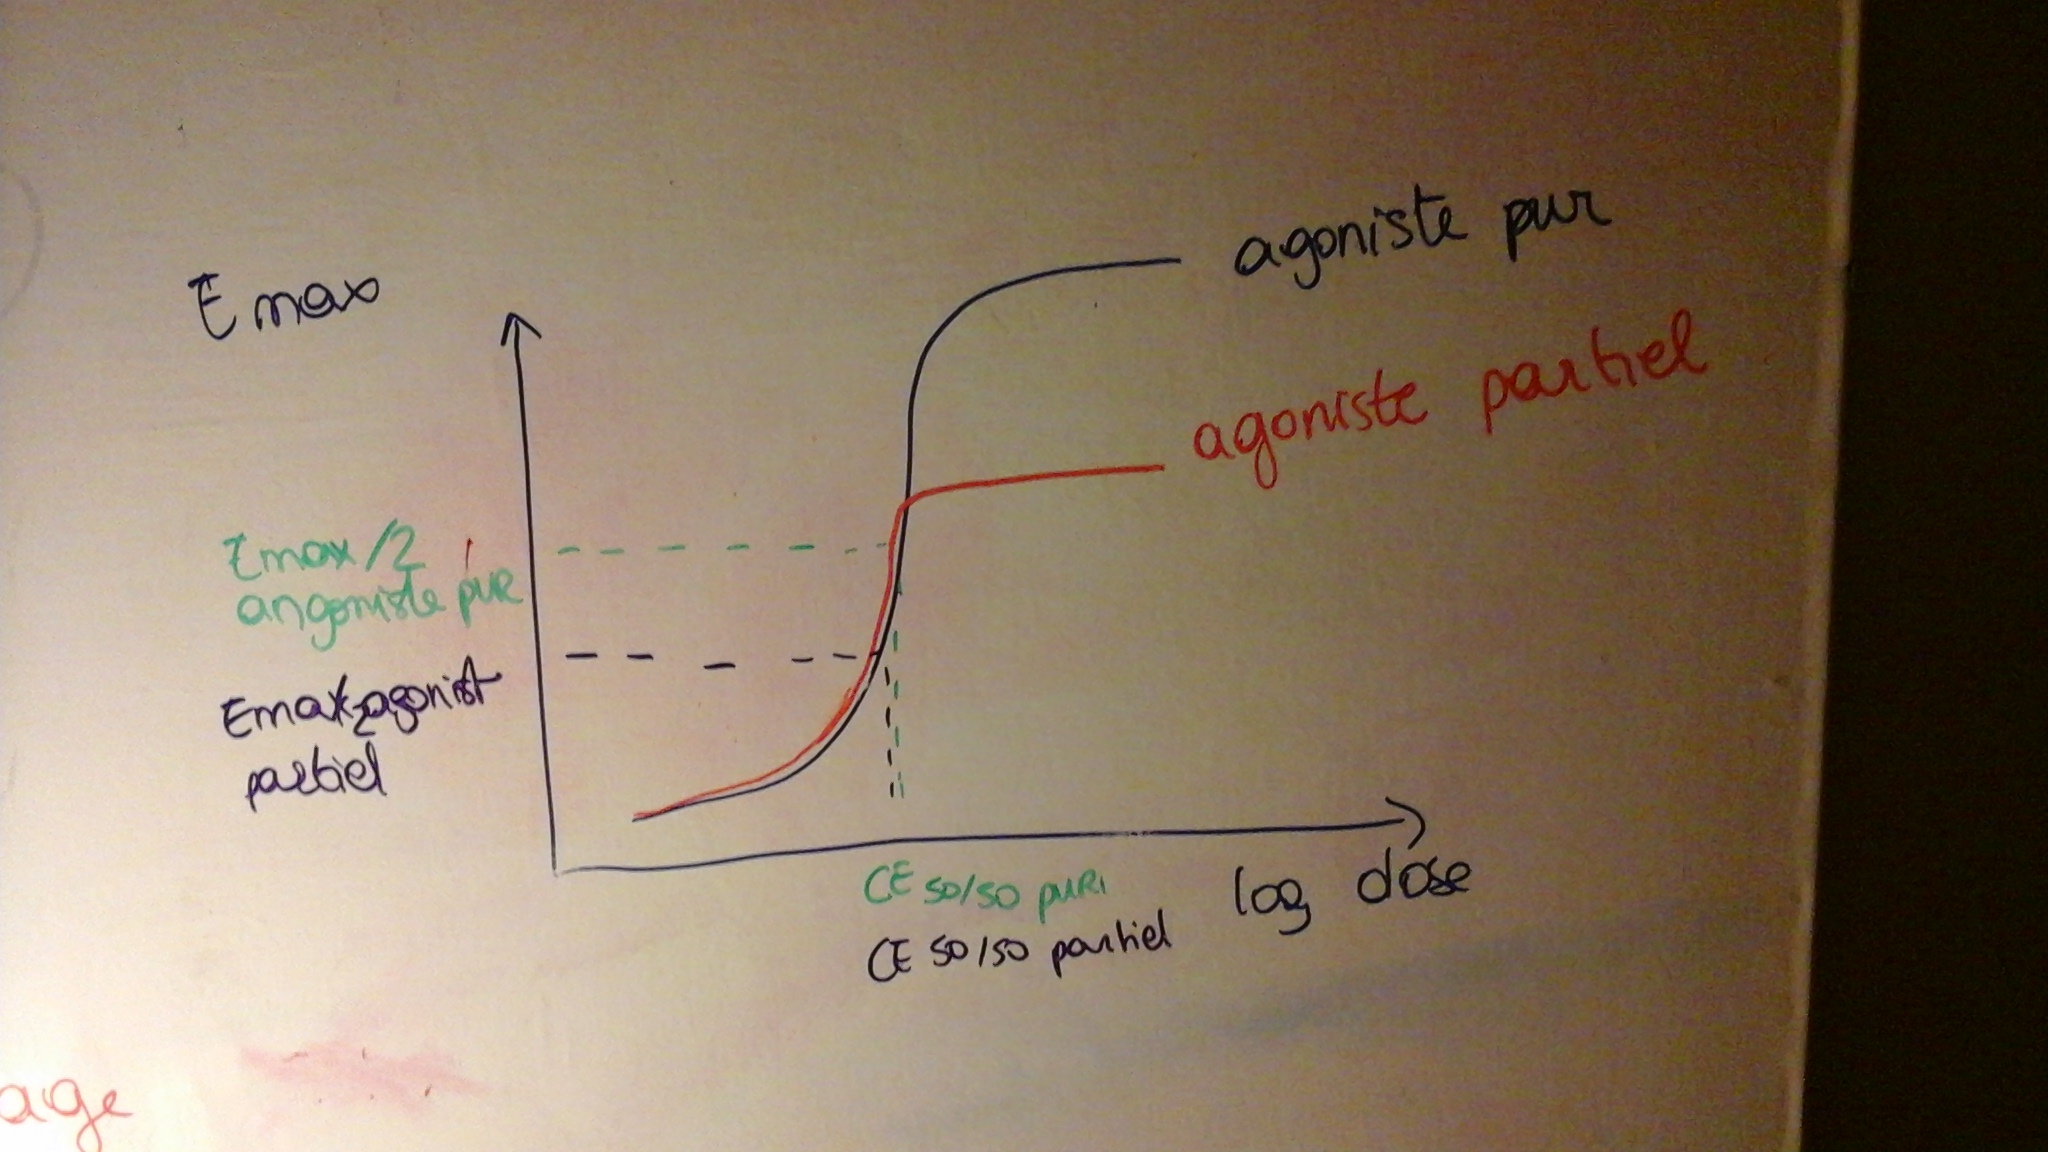 E max
agoniste pur
agoniste partiel
Emax/2
angoniste pur
Emax/2 agonist
partiel
CE 50/50 pur
CE 50/50 partiel
log dose
age